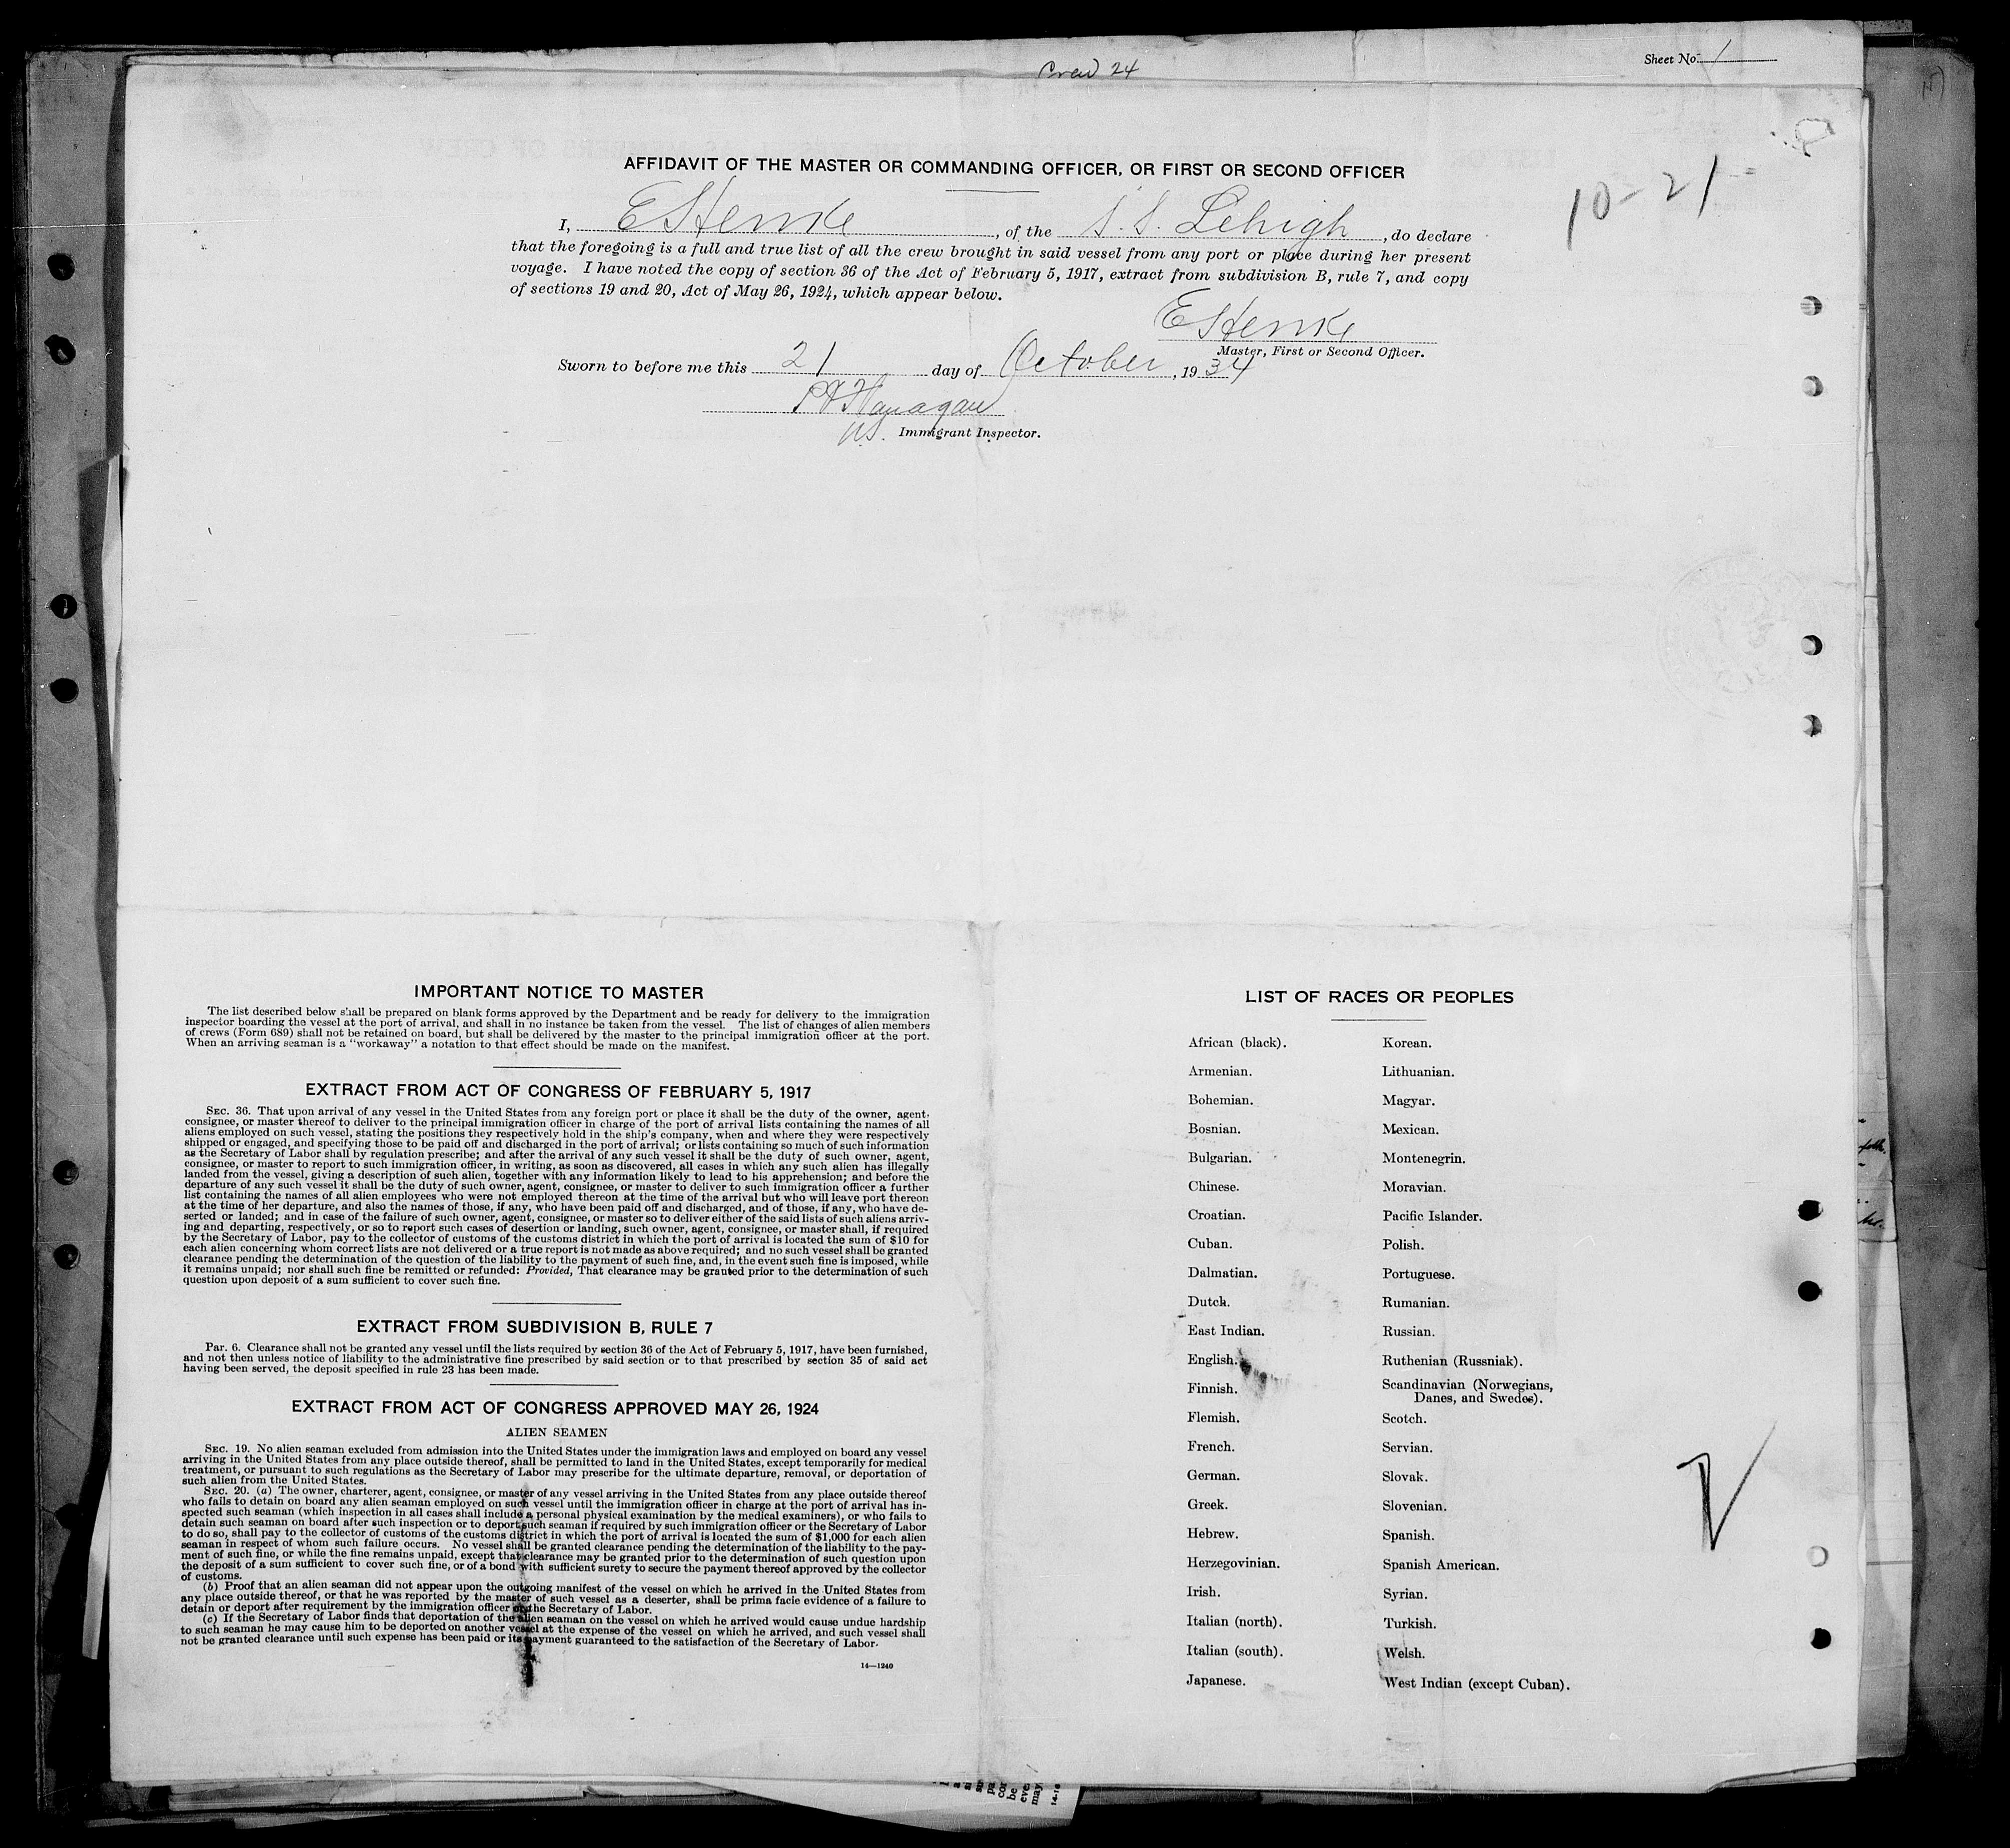 Sheet No. 1
Crew 24
10-21
AFFIDAVIT OF THE MASTER OR COMMANDING OFFICER, OR FIRST OR SECOND OFFICER
I, E Henke, of the S.S. Lehigh, do declare
that the foregoing is a full and true list of all the crew brought in said vessel from any port or place during her present
voyage. I have noted the copy of section 36 of the Act of February 5, 1917, extract from subdivision B, rule 7, and copy
of sections 19 and 20, Act of May 26, 1924, which appear below.
E Henke
Master, First or Second Officer.
Sworn to before me this 21 day of October, 1934
U.S. Immigrant Inspector.
IMPORTANT NOTICE TO MASTER
The list described below shall be prepared on blank forms approved by the Department and be ready for delivery to the immigration
inspector boarding the vessel at the port of arrival, and shall in no instance be taken from the vessel. The list of changes of alien members
of crews (Form 689) shall not be retained on board, but shall be delivered by the master to the principal immigration officer at the port.
When an arriving seaman is a "workaway" a notation to that effect should be made on the manifest.
EXTRACT FROM ACT OF CONGRESS OF FEBRUARY 5, 1917
SEC. 36. That upon arrival of any vessel in the United States from any foreign port or place it shall be the duty of the owner, agent,
consignee, or master thereof to deliver to the principal immigration officer in charge of the port of arrival lists containing the names of all
aliens employed on such vessel, stating the positions they respectively hold in the ship's company, when and where they were respectively
shipped or engaged, and specifying those to be paid off and discharged in the port of arrival; or lists containing so much of such information
as the Secretary of Labor shall by regulation prescribe; and after the arrival of any such vessel it shall be the duty of such owner, agent,
consignee, or master to report to such immigration officer, in writing, as soon as discovered, all cases in which any such alien has illegally
landed from the vessel, giving a description of such alien, together with any information likely to lead to his apprehension; and before the
departure of any such vessel it shall be the duty of such owner, agent, consignee, or master to deliver to such immigration officer a further
list containing the names of all alien employees who were not employed thereon at the time of the arrival but who will leave port thereon
at the time of her departure, and also the names of those, if any, who have been paid off and discharged, and of those, if any, who have de-
serted or landed; and in case of the failure of such owner, agent, consignee, or master so to deliver either of the said lists of such aliens arriv-
ing and departing, respectively, or so to report such cases of desertion or landing, such owner, agent, consignee, or master shall, if required
by the Secretary of Labor, pay to the collector of customs of the customs district in which the port of arrival is located the sum of $10 for
each alien concerning whom correct lists are not delivered or a true report is not made as above required; and no such vessel shall be granted
clearance pending the determination of the question of the liability to the payment of such fine, and, in the event such fine is imposed, while
it remains unpaid; nor shall such fine be remitted or refunded: Provided, That clearance may be granted prior to the determination of such
question upon deposit of a sum sufficient to cover such fine.
EXTRACT FROM SUBDIVISION B, RULE 7
Par. 6. Clearance shall not be granted any vessel until the lists required by section 36 of the Act of February 5, 1917, have been furnished,
and not then unless notice of liability to the administrative fine prescribed by said section or to that prescribed by section 35 of said act
having been served, the deposit specified in rule 23 has been made.
EXTRACT FROM ACT OF CONGRESS APPROVED MAY 26, 1924
ALIEN SEAMEN
SEC. 19. No alien seaman excluded from admission into the United States under the immigration laws and employed on board any vessel
arriving in the United States from any place outside thereof, shall be permitted to land in the United States, except temporarily for medical
treatment, or pursuant to such regulations as the Secretary of Labor may prescribe for the ultimate departure, removal, or deportation of
such alien from the United States.
SEC. 20. (a) The owner, charterer, agent, consignee, or master of any vessel arriving in the United States from any place outside thereof
who fails to detain on board any alien seaman employed on such vessel until the immigration officer in charge at the port of arrival has in-
spected such seaman (which inspection in all cases shall include a personal physical examination by the medical examiners), or who fails to
detain such seaman on board after such inspection or to deport such seaman if required by such immigration officer or the Secretary of Labor
to do so, shall pay to the collector of customs of the customs district in which the port of arrival is located the sum of $1,000 for each alien
seaman in respect of whom such failure occurs. No vessel shall be granted clearance pending the determination of the liability to the pay-
ment of such fine, or while the fine remains unpaid, except that clearance may be granted prior to the determination of such question upon
the deposit of a sum sufficient to cover such fine, or of a bond with sufficient surety to secure the payment thereof approved by the collector
of customs.
(b) Proof that an alien seaman did not appear upon the outgoing manifest of the vessel on which he arrived in the United States from
any place outside thereof, or that he was reported by the master of such vessel as a deserter, shall be prima facie evidence of a failure to
detain or deport after requirement by the immigration officer or the Secretary of Labor.
(c) If the Secretary of Labor finds that deportation of the alien seaman on the vessel on which he arrived would cause undue hardship
to such seaman he may cause him to be deported on another vessel at the expense of the vessel on which he arrived, and such vessel shall
not be granted clearance until such expense has been paid or its payment guaranteed to the satisfaction of the Secretary of Labor.
14—1240
LIST OF RACES OR PEOPLES
African (black).
Armenian.
Bohemian.
Bosnian.
Bulgarian.
Chinese.
Croatian.
Cuban.
Dalmatian.
Dutch.
East Indian.
English.
Finnish.
Flemish.
French.
German.
Greek.
Hebrew.
Herzegovinian.
Irish.
Italian (north).
Italian (south).
Japanese.
Korean.
Lithuanian.
Magyar.
Mexican.
Montenegrin.
Moravian.
Pacific Islander.
Polish.
Portuguese.
Rumanian.
Russian.
Ruthenian (Russniak).
Scandinavian (Norwegians,
Danes, and Swedes).
Scotch.
Servian.
Slovak.
Slovenian.
Spanish.
Spanish American.
Syrian.
Turkish.
Welsh.
West Indian (except Cuban).